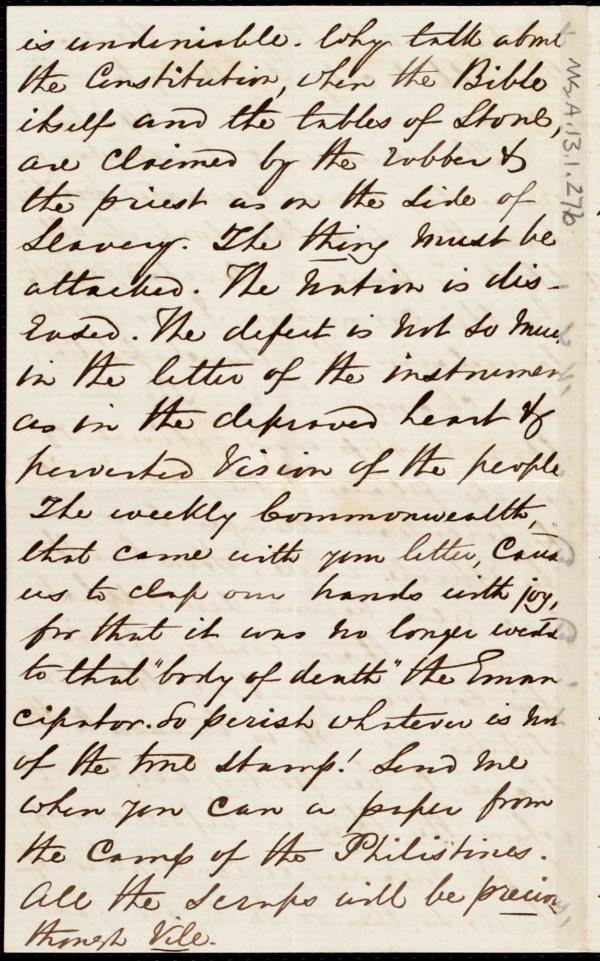 is undeniable. Why talk about
the Constitution, when the Bible
itself and the tables of Stone,
are claimed by the robber &
the priest as on the side of
Slavery. The thing must be
attacked. The Nation is dis-
eased. The defect is not so muc
in the letter of the instrumen
as in the depraved heart &
perverted vision of the people
The weekly Commonwealth,
that came with your letter, Caus
us to clap our hands with joy,
for that it was no longer wedd
to that "body of death" the Eman
cipator. So perish whatever is no
of the true stamp! Send me
when you can a paper from
the camp of the Philistines.
All the scraps will be preciou
though Vile.
Ms.A.13.1.27b